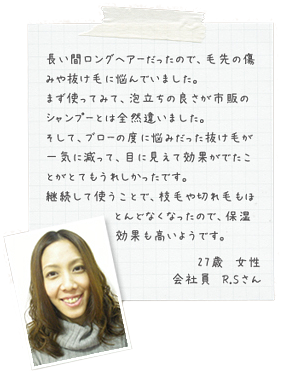 長い間ロングヘアーだったので、毛先の傷
みや抜け毛に悩んでいました。
まず使ってみて、泡立ちの良さが市販の
シャンプーとは全然違いました。
そして、ブローの度に悩みだった抜け毛が
一気に減って、目に見えて効果がでたこ
とがとてもうれしかったです。
継続して使うことで、枝毛や切れ毛もほ
とんどなくなったので、保湿
効果も高いようです。
27歳　女性
会社員　R.Sさん